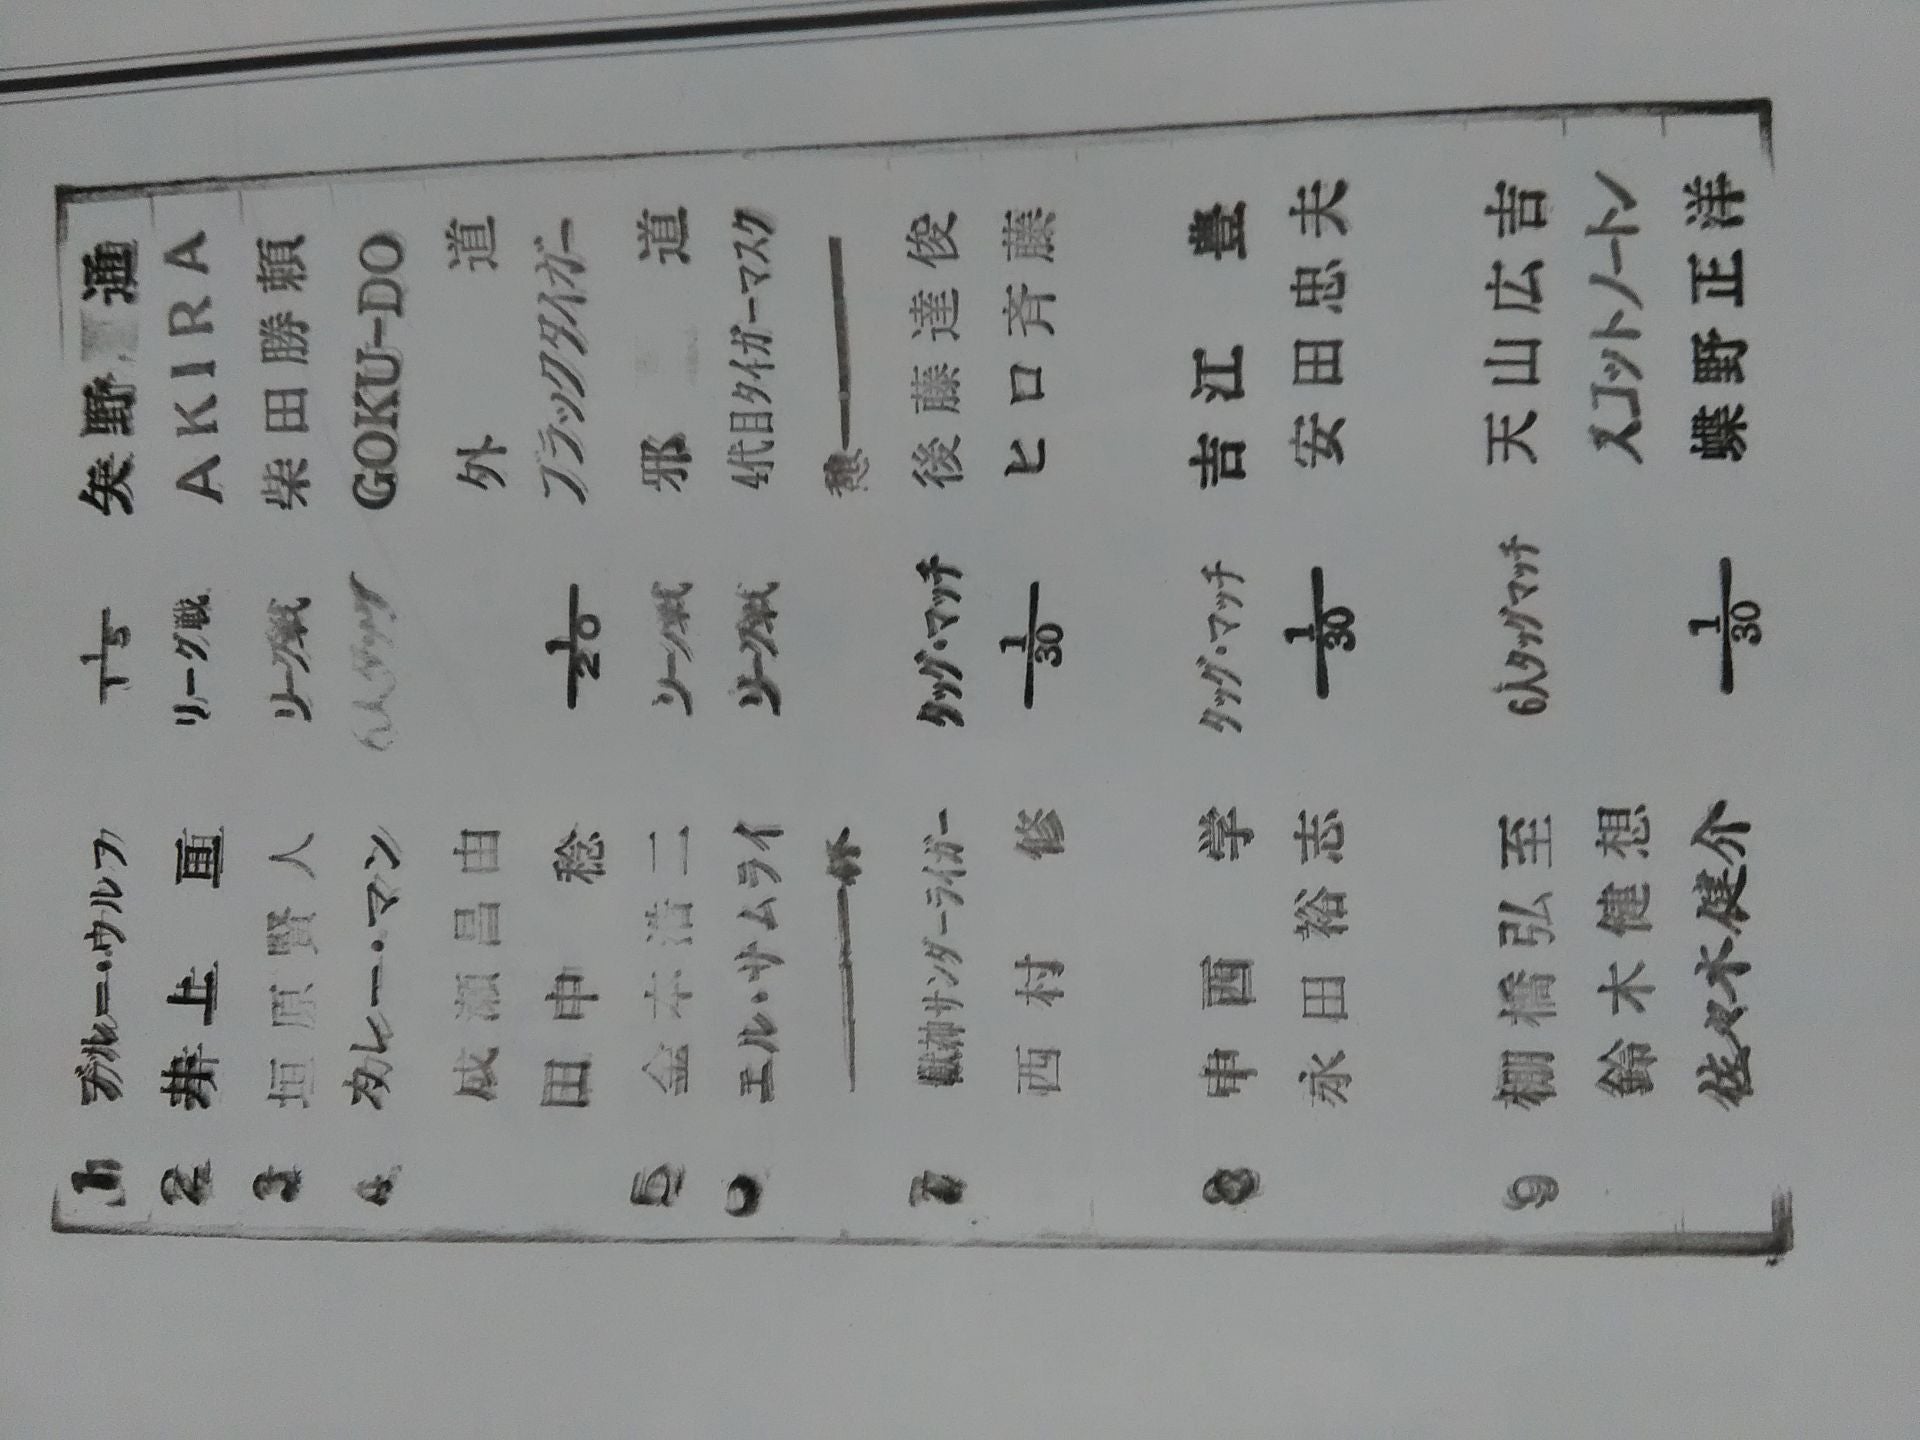 1 ブルー・ウルフ 1/15 矢野 通
2 井上 亘 リーグ戦 AKIRA
3 垣原賢人 リーグ戦 柴田勝頼
4 カレー・マン 6人タッグ GOKU-DO
成瀬昌由 外道
田中 稔 1/20 ブラックタイガー
5 金本浩二 リーグ戦 邪道
エル・サムライ リーグ戦 4代目タイガーマスク
休 憩
7 獣神サンダーライガー タッグ・マッチ 後藤達俊
西村 修 1/30 ヒロ斉藤
8 中西 学 タッグ・マッチ 吉江 豊
永田裕志 1/30 安田忠夫
9 棚橋弘至 6人タッグマッチ 天山広吉
鈴木健想 スコットノートン
佐々木健介 1/30 蝶野正洋